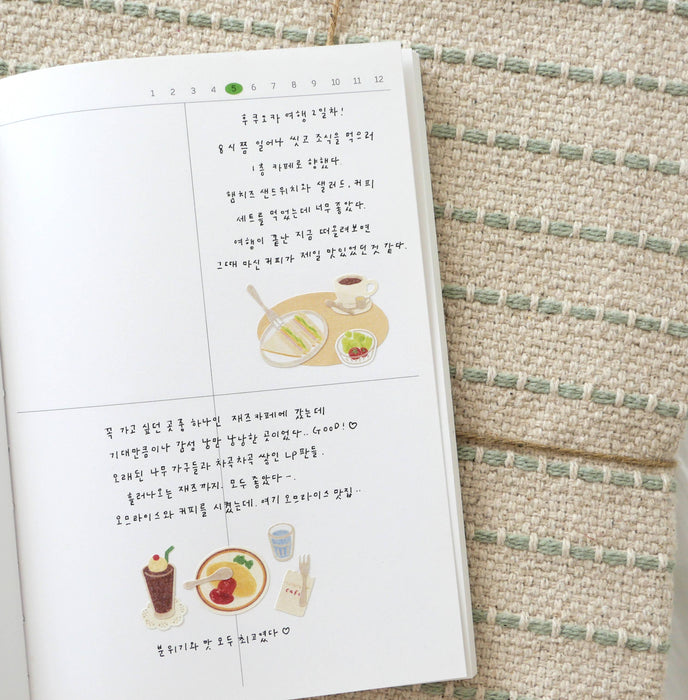 1 2 3 4 5 6 7 8 9 10 11 12
후쿠오카 여행 2일차!
8시쯤 일어나 씻고 조식을 먹으러
1층 카페로 향했다.
햄치즈 샌드위치와 샐러드, 커피
세트를 먹었는데 너무 좋았다.
여행이 끝난 지금 떠올려보면
그때 마신 커피가 제일 맛있었던 것 같다.
꼭 가고 싶던 곳 중 하나인 재즈카페에 갔는데
기대만큼이나 감성 낭만 낭낭한 곳이었다.. GOOD! ♡
오래된 나무 가구들과 차곡차곡 쌓인 LP판들.
흘러나오는 재즈까지. 모두 좋았다 ~.
오므라이스와 커피를 시켰는데. 여기 오므라이스 맛집..
cafe
분위기와 맛 모두 최고였다 ♡